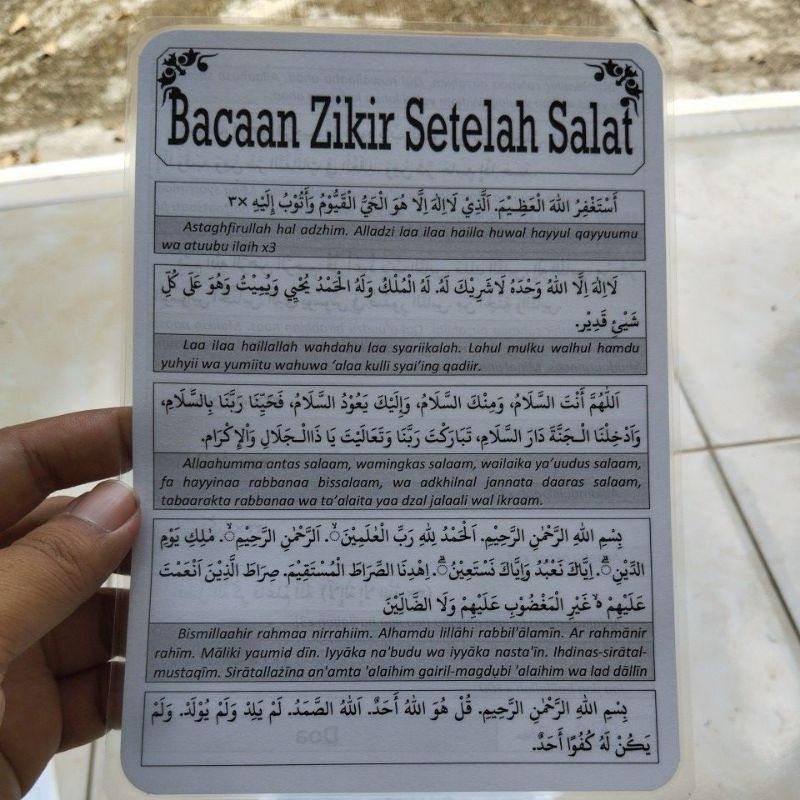 Bacaan Zikir Setelah Salat
أَسْتَغْفِرُ اللهَ الْعَظِيْمَ. اَلَّذِيْ لَااِلٰهَ اِلَّا هُوَ الْحَيُّ الْقَيُّوْمُ وَأَتُوْبُ إِلَيْهِ ×٣
Astaghfirullah hal adzhim. Alladzi laa ilaa hailla huwal hayyul qayyuumu
wa atuubu ilaih x3
لَااِلٰهَ اِلَّا اللهُ وَحْدَهُ لَاشَرِيْكَ لَهُ. لَهُ الْمُلْكُ وَلَهُ الْحَمْدُ يُحْيِي وَيُمِيْتُ وَهُوَ عَلَى كُلِّ
شَيْئٍ قَدِيْر.
Laa ilaa haillallah wahdahu laa syariikalah. Lahul mulku walhul hamdu
yuhyii wa yumiitu wahuwa ‘alaa kulli syai’ing qadiir.
اَللّٰهُمَّ أَنْتَ السَّلَامُ، وَمِنْكَ السَّلَامُ، وَإِلَيْكَ يَعُوْدُ السَّلَامُ، فَحَيِّنَا رَبَّنَا بِالسَّلَامِ،
وَاَدْخِلْنَا الْـجَنَّةَ دَارَ السَّلَامِ، تَبَارَكْتَ رَبَّنَا وَتَعَالَيْتَ يَا ذَاالْـجَلَالِ وَاْلإِكْرَام.
Allaahumma antas salaam, wamingkas salaam, wailaika ya’uudus salaam,
fa hayyinaa rabbanaa bissalaam, wa adkhilnal jannata daaras salaam,
tabaarakta rabbanaa wa ta’alaita yaa dzal jalaali wal ikraam.
بِسْمِ اللهِ الرَّحْمٰنِ الرَّحِيْمِ. اَلْحَمْدُ لِلّٰهِ رَبِّ الْعٰلَمِيْنَۙ. اَلرَّحْمٰنِ الرَّحِيْمِۙ. مٰلِكِ يَوْمِ
الدِّيْنِۗ. اِيَّاكَ نَعْبُدُ وَاِيَّاكَ نَسْتَعِيْنُۗ. اِهْدِنَا الصِّرَاطَ الْمُسْتَقِيْمَ. صِرَاطَ الَّذِيْنَ اَنْعَمْتَ
عَلَيْهِمْ ەۙ غَيْرِ الْمَغْضُوْبِ عَلَيْهِمْ وَلَا الضَّاۤلِّيْنَ
Bismillaahir rahmaa nirrahiim. Alhamdu lillāhi rabbil'ālamīn. Ar rahmānir
rahīm. Māliki yaumid dīn. Iyyāka na'budu wa iyyāka nasta'īn. Ihdinas-sirātal-
mustaqīm. Sirātallażīna an'amta 'alaihim gairil-magḍụbi 'alaihim wa lad dāllīn
بِسْمِ اللهِ الرَّحْمٰنِ الرَّحِيْمِ. قُلْ هُوَ اللهُ اَحَدٌ. اَللهُ الصَّمَدُ. لَمْ يَلِدْ وَلَمْ يُوْلَدْ. وَلَمْ
يَكُنْ لَهُ كُفُوًا اَحَدٌ.